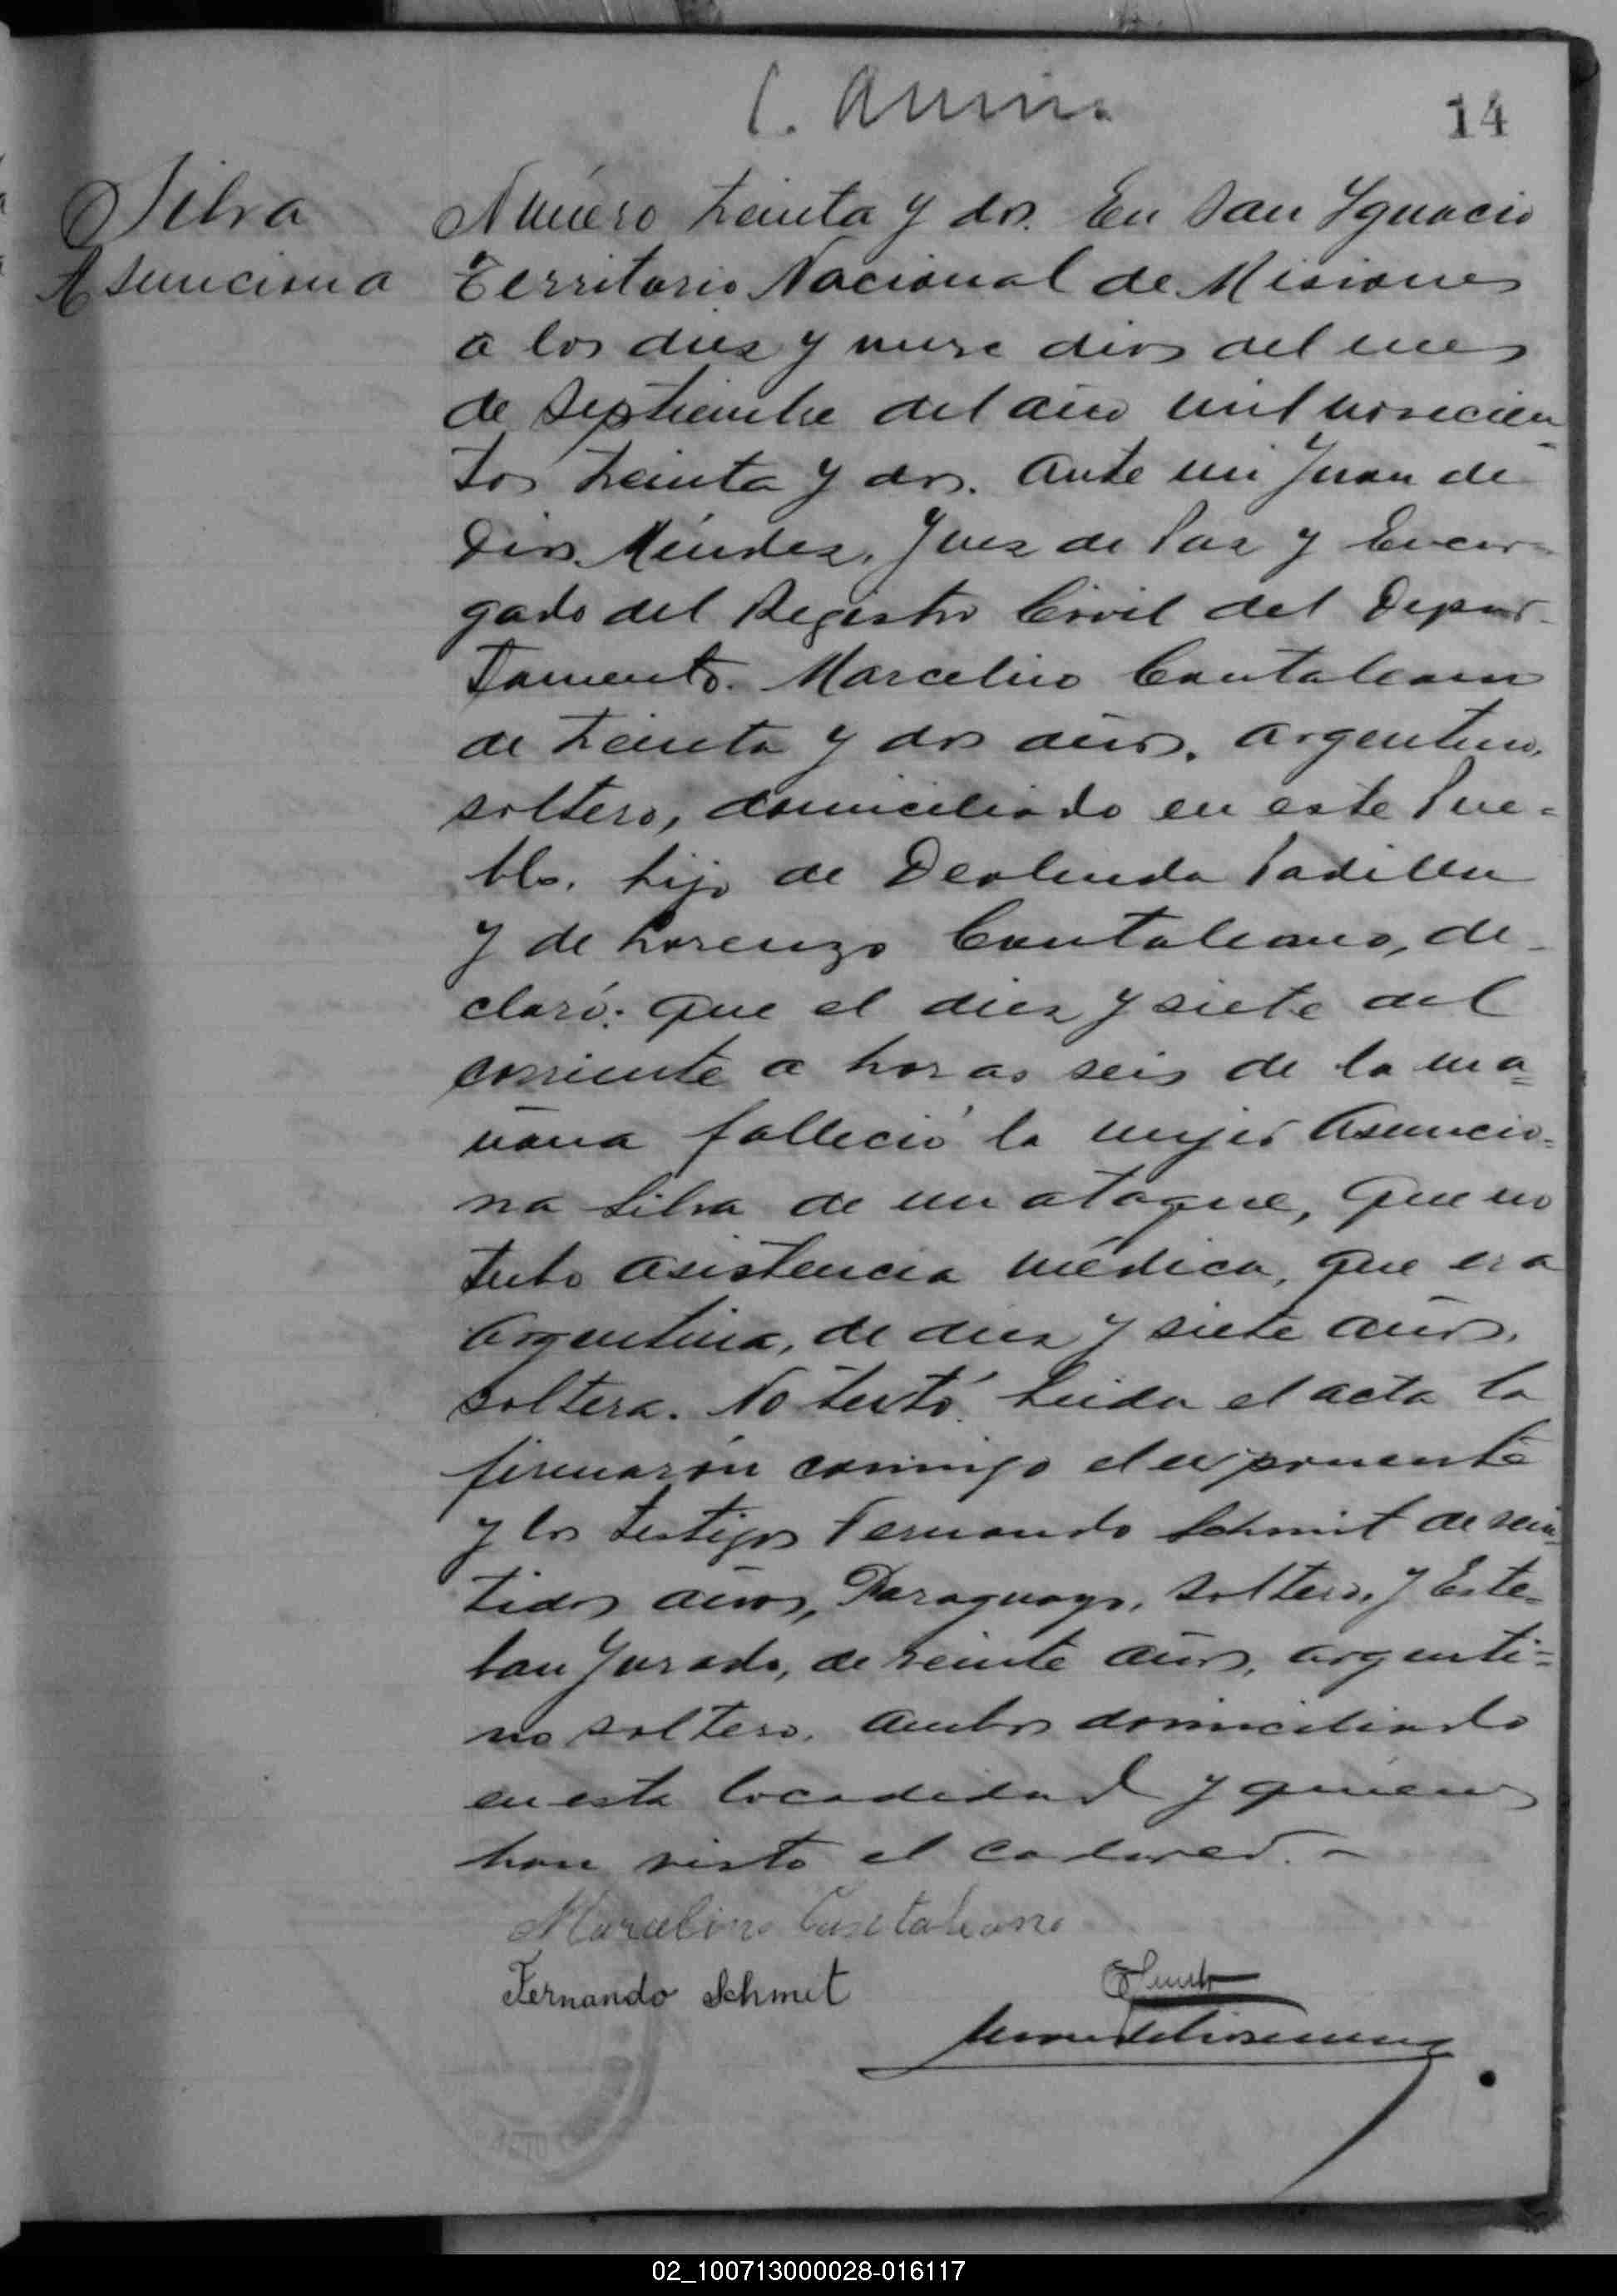 14
Silva
Asunciona
Número treinta y dos. En San Ignacio
Territorio Nacional de Misiones
a los diez y nueve dias del mes
de Septiembre del año mil novecien-
tos treinta y dos. Ante mi Juan de
Dios Méndez, Juez de Paz y Encar-
gado del Registro Civil del Depar-
tamento. Marcelino Cantaleano
de treinta y dos años, argentino,
soltero, domiciliado en este Pue-
blo, hijo de Deolinda Padilla
y de Lorenzo Cantaleano, de-
claró: que el diez y siete del
corriente a horas seis de la ma-
ñana falleció la mujer Asuncio-
na Silva de un ataque, que no
tubo asistencia médica, que era
argentina, de diez y siete años,
soltera. No testó. Leida el acta la
firmarón conmigo el exponente
y los testigos Fernando Schmit de vein-
tidos años, Paraguayo, soltero, y Este-
ban Jurado, de veinte años, argenti-
no soltero, ambos domiciliado
en esta locadidad y quienes
han visto el cadaver. -
Marcelino Cantaleano
Fernando Schmit
02_100713000028-016117